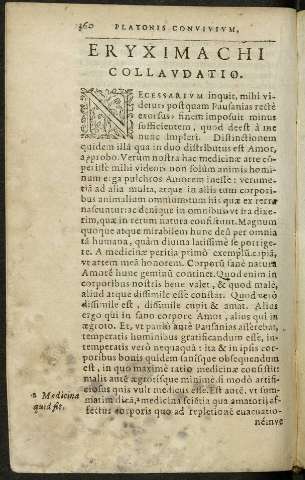 360 PLATONIS CONVIVIVM,
ERYXIMACHI
COLLAVDATIO.
NECESSARIVM inquit, mihi vi-
detur, postquam Pausanias rectè
exorsus, finem imposuit minus
sufficientem, quod deest à me
nunc impleri. Distinctionem
quidem illã qua in duo distributus est Amor,
approbo. Verum nostra hac medicinæ arte cõ-
peri mihi videor non solùm animis homi-
num erga pulchros Amorem inesse: verumé-
tiã ad alia multa, atque in aliis tum corpori-
bus animalium omnium, tum his quæ ex terra
nascuntur: ac denique in omnibus vt ita dixe-
rim, quæ in rerum natura consistunt. Magnum
quoque atque mirabilem hunc deũ per omnia
tã humana, quàm diuina latissimè se porrige-
re. A medicinæ peritia primò exemplũ capiã,
vt artem meã honorem. Corporũ sanè natura
Amorẽ hunc geminũ continet. Quod enim in
corporibus nostris bene valet, & quod malè,
aliud atque dissimile esse constat. Quod verò
dissimile est, dissimile cupit & amat. Alius
ergo qui in sano corpore Amor, alius qui in
ægroto. Et, vt paulò antè Pausanias asserebat,
temperatis hominibus gratificandum esse, in-
temperatis verò nequaquã: ita & in ipsis cor-
poribus bonis quidem sanisque obsequendum
est, in quo maximè ratio medicinæ consistit:
malis autẽ ægrotisque minime, si modò artifi-
ciosus quis vult medicus esse. Est autẽ, vt sum-
matim dicã, a medicina sciẽtia qua amatorij af-
fectus corporis quo ad repletionẽ euacuatio-
nẽmve
a Medicina
quid sit.